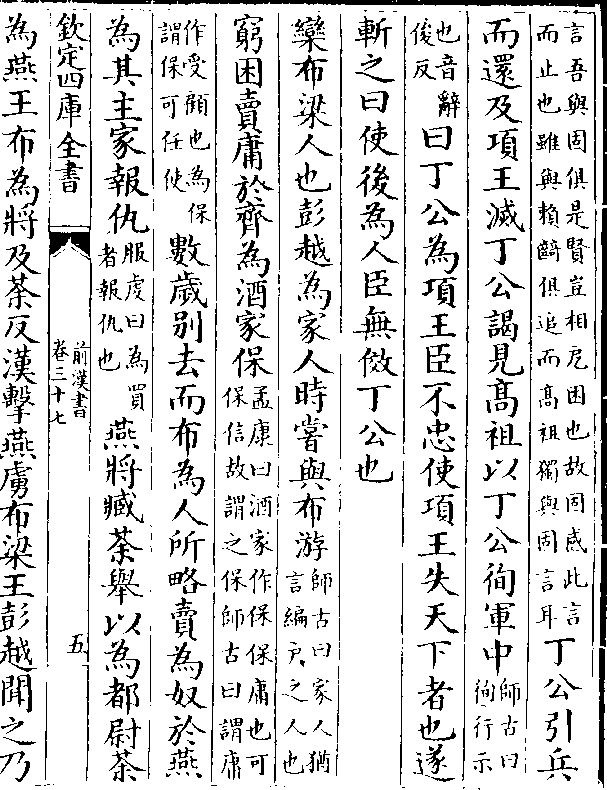 言吾與固俱是賢豈相戹困也故固感此言
而止也雖與賴齮俱追而髙祖獨與固言耳
丁公引兵
而還及項王滅丁公謁見髙祖以丁公徇軍中
師古曰
徇行示
也音辭
俊反
曰丁公為項王臣不忠使項王失天下者也遂
斬之曰使後為人臣無傚丁公也
欒布梁人也彭越為家人時嘗與布游
師古曰家人猶
言編戸之人也
窮困賣庸於齊為酒家保
孟康曰酒家作保保庸也可
保信故謂之保師古曰謂庸
作受顧也為保
謂保可任使
數歲别去而布為人所略賣為奴於燕
為其主家報仇
服虔曰為買
者報仇也
燕將臧荼舉以為都尉荼
欽定四庫全書
前漢書
卷三十七
五
為燕王布為將及荼反漢擊燕虜布梁王彭越聞之乃